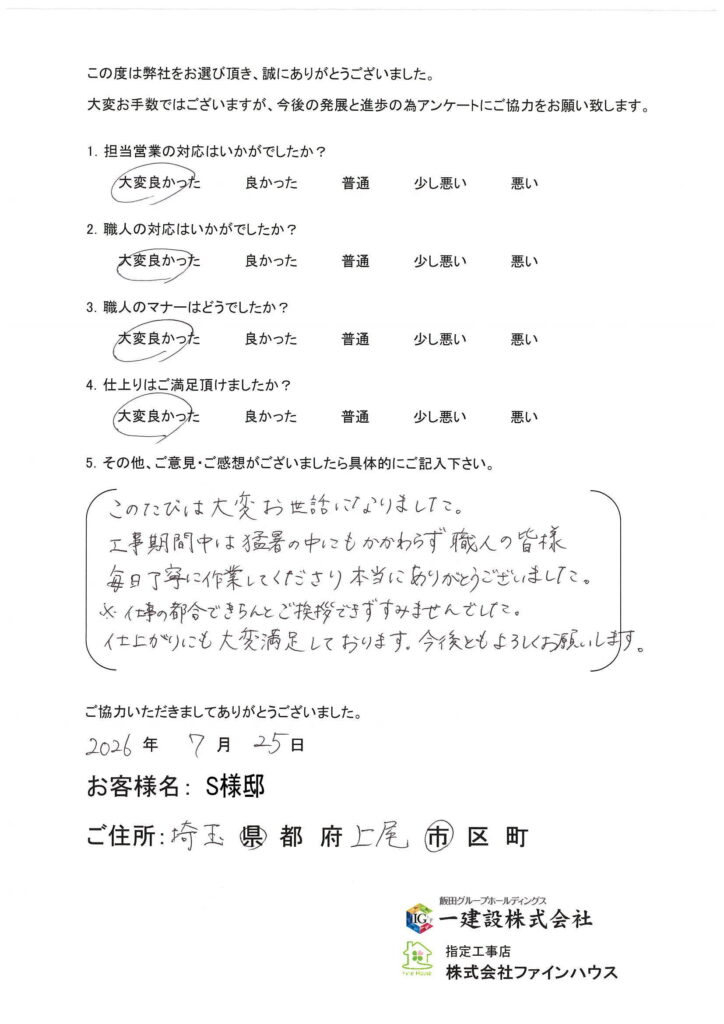 この度は弊社をお選び頂き、誠にありがとうございました。
大変お手数ではございますが、今後の発展と進歩の為アンケートにご協力をお願い致します。
1. 担当営業の対応はいかがでしたか？
大変良かった 良かった 普通 少し悪い 悪い
2. 職人の対応はいかがでしたか？
大変良かった 良かった 普通 少し悪い 悪い
3. 職人のマナーはどうでしたか？
大変良かった 良かった 普通 少し悪い 悪い
4. 仕上りはご満足頂けましたか？
大変良かった 良かった 普通 少し悪い 悪い
5. その他、ご意見・ご感想がございましたら具体的にご記入下さい。
このたびは大変お世話になりました。
工事期間中は猛暑の中にもかかわらず職人の皆様
毎日丁寧に作業してくださり本当にありがとうございました。
※仕事の都合できちんとご挨拶できずすみませんでした。
仕上がりにも大変満足しております。今後ともよろしくお願いします。
ご協力いただきましてありがとうございました。
2026 年 7 月 25 日
お客様名： S様邸
ご住所：埼玉 県 都 府 上尾 市 区 町
飯田グループホールディングス
IG 一建設株式会社
指定工事店
Fine House 株式会社ファインハウス